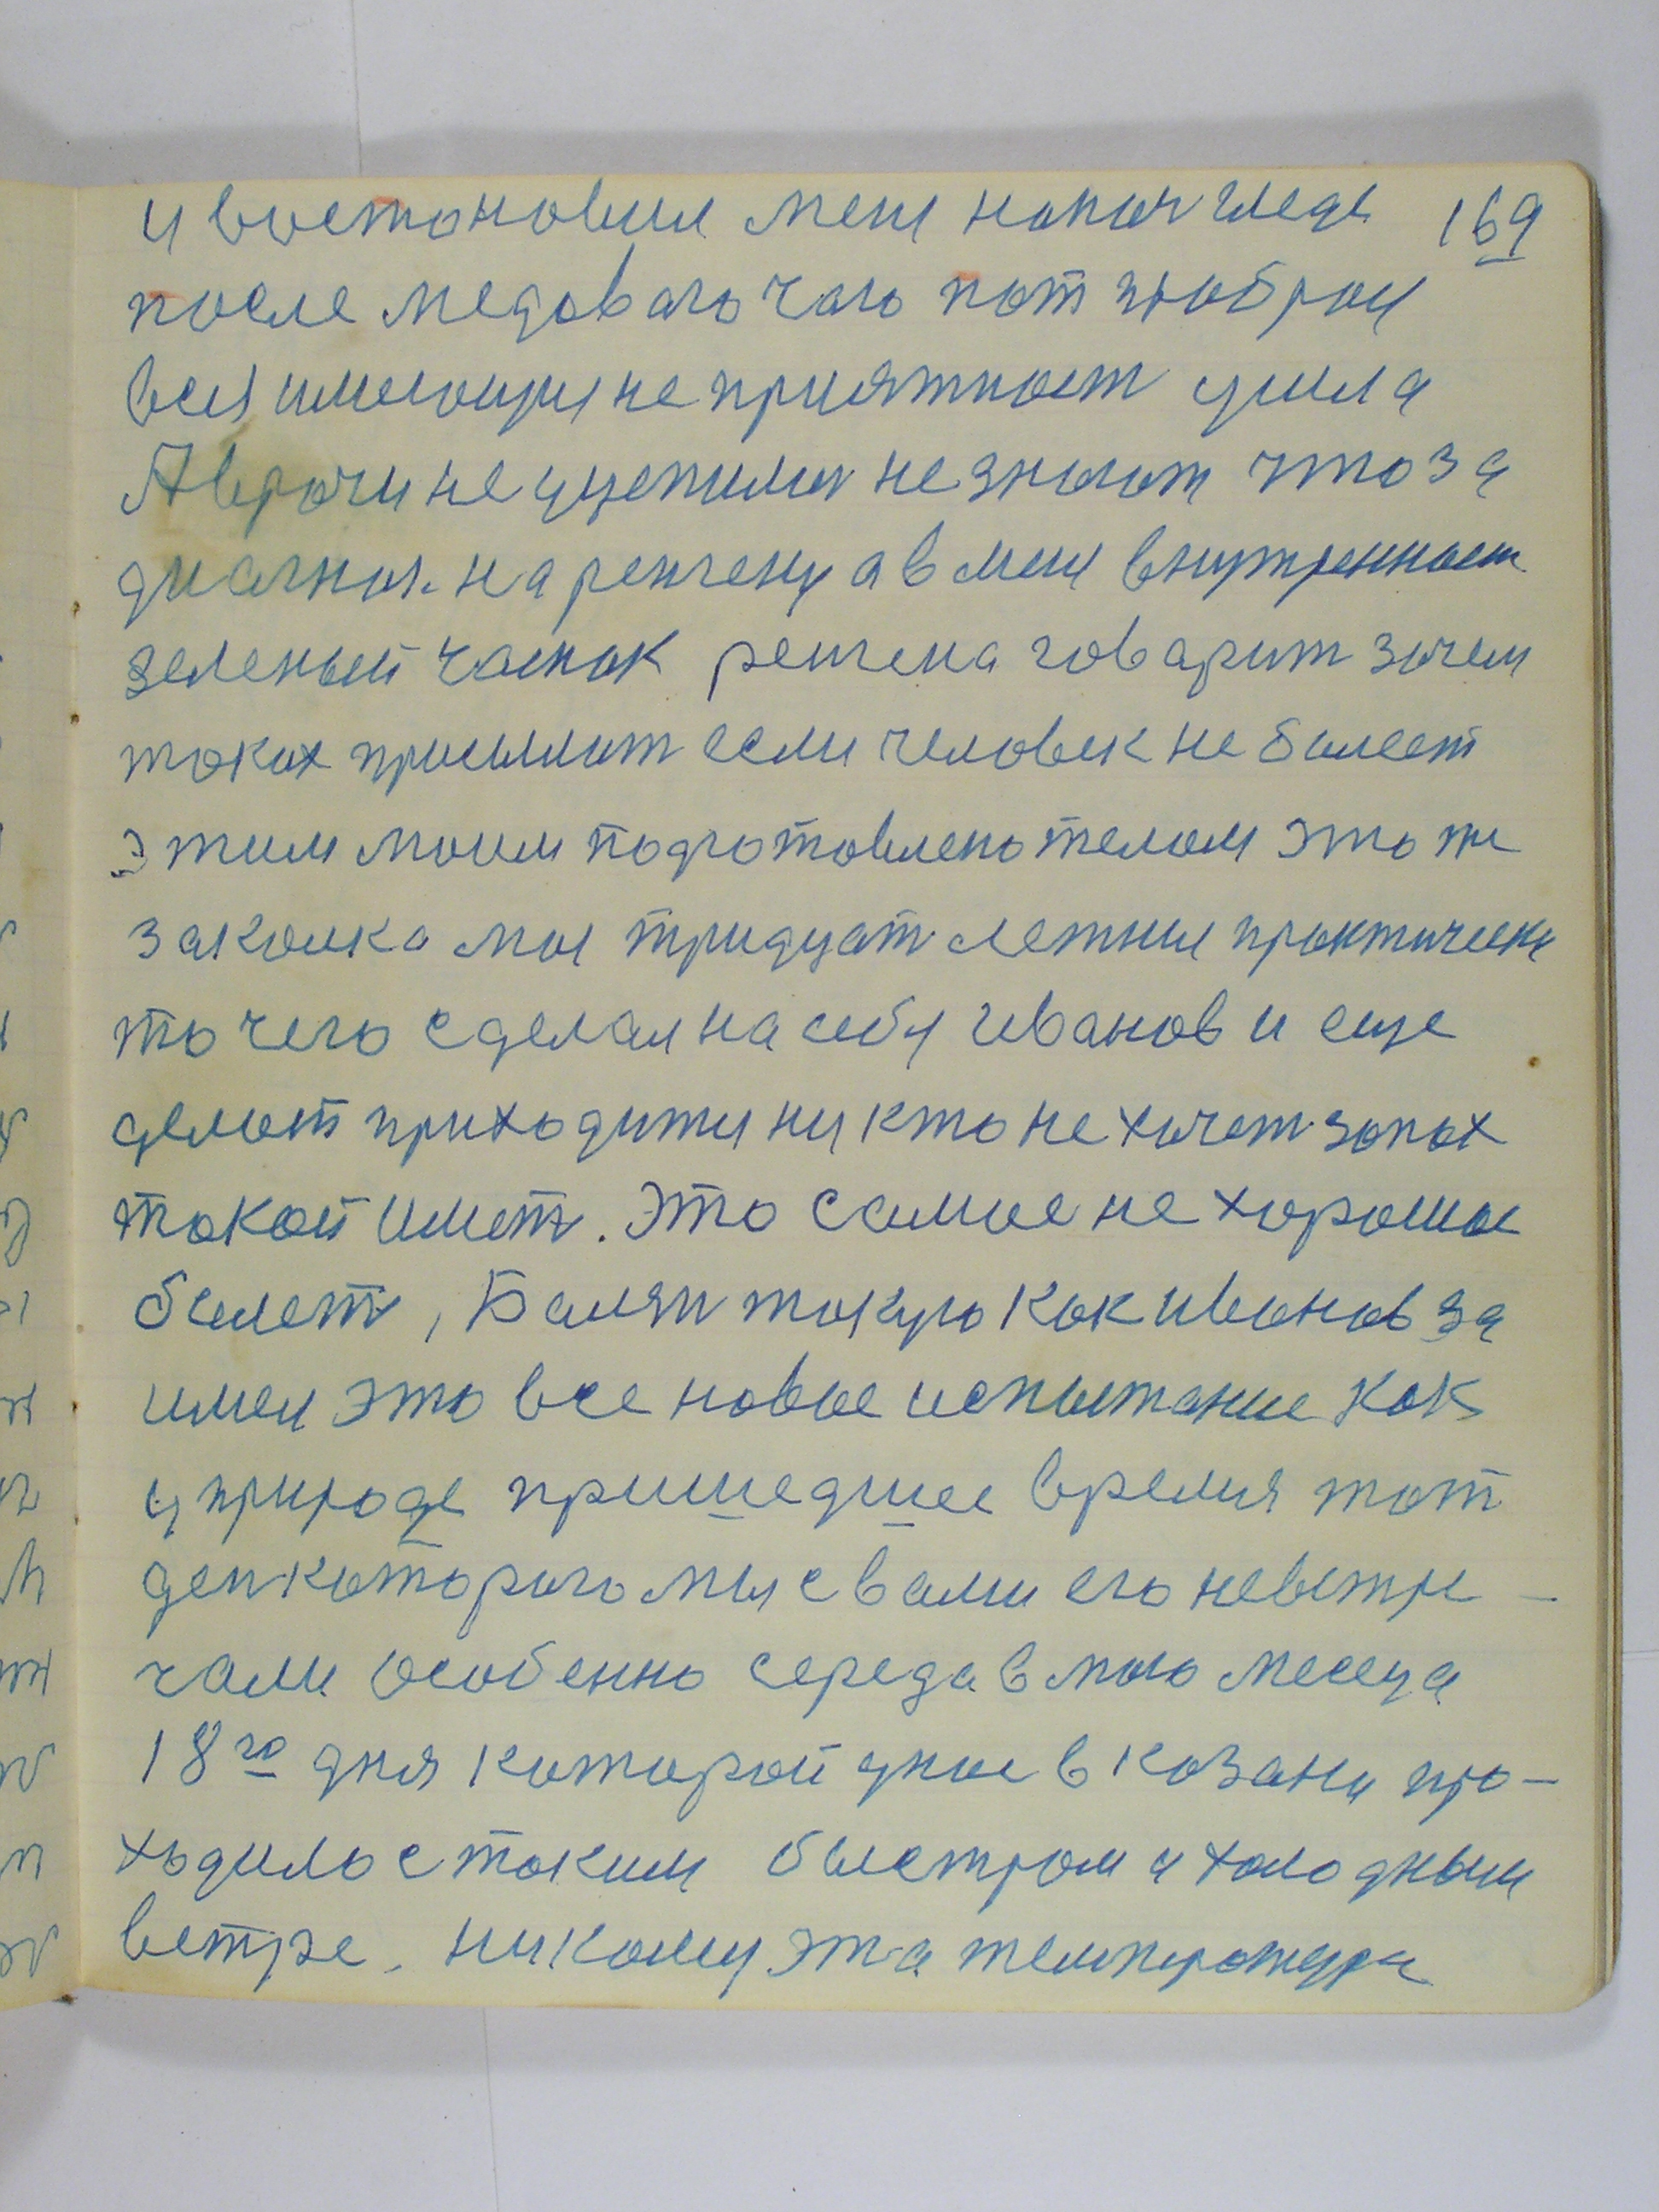 и востоновил меня 169
после медоваго чаю пот
вся имеющия не приятност ушла
А врачи не уцепилис не знают что за
диагноз. на ренгену а в мени внутренност
зеленый часнок ренгена говарит зачем
таких присылат если человек не болеет
этим моим подготовлено телом это же
заколка моя тридцат летния практически
то чего сделал на себя Иванов и еще
делает приходити ни кто не хочет запах
такой имет. Это самое не хорошое
болет, Болязн такую как иванов за
имел это все новое испытание как
у природе пришедшее время тот
ден которого мы с вами его не встре –
чали особенно середа в маю меседа
18го дня которой дное в казани про –
ходило с таким быстром и холодным
ветре. никому эта температура